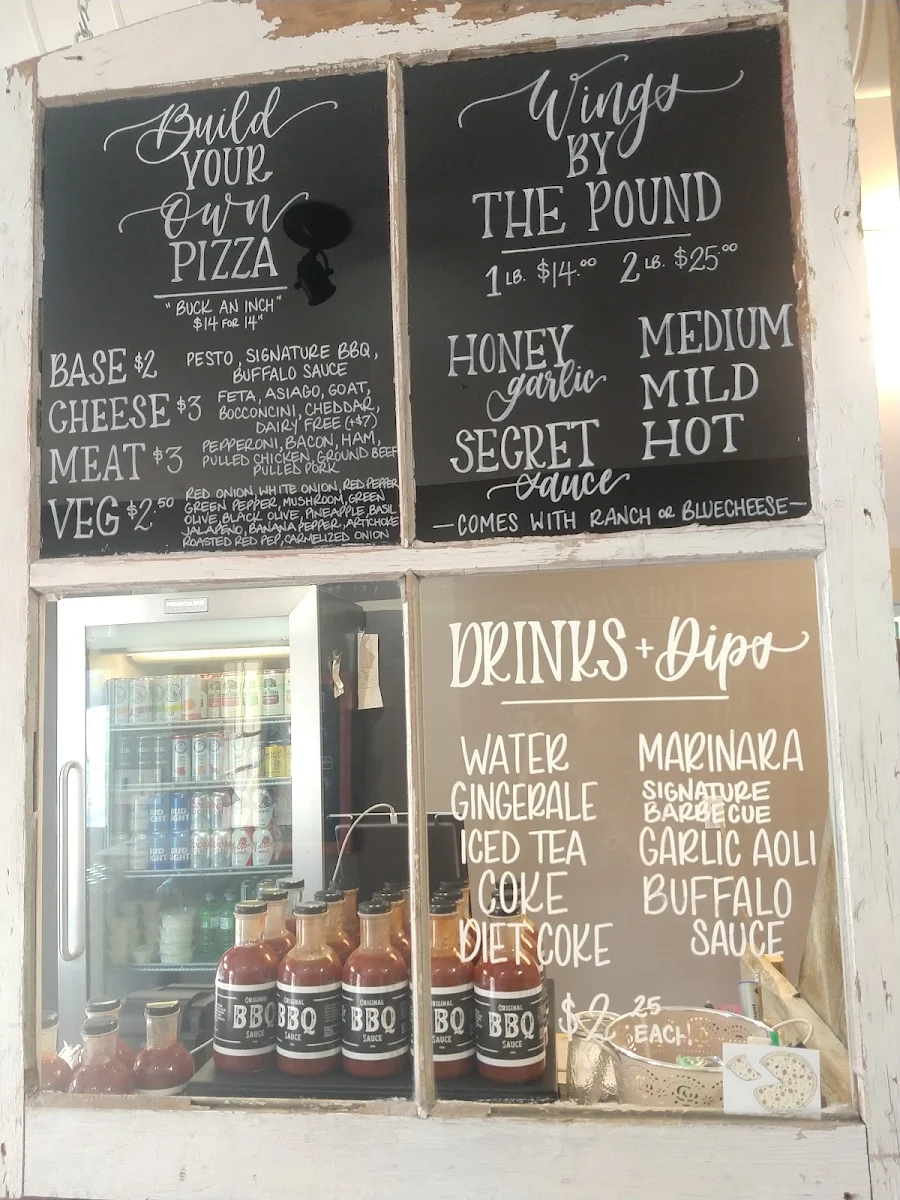 Build
YOUR
Own
PIZZA
"BUCK AN INCH"
$14 FOR 14"
BASE $2 PESTO, SIGNATURE BBQ,
BUFFALO SAUCE
CHEESE $3 FETA, ASIAGO, GOAT,
BOCCONCINI, CHEDDAR,
DAIRY FREE (+$7)
MEAT $3 PEPPERONI, BACON, HAM,
PULLED CHICKEN, GROUND BEEF
PULLED PORK
VEG $2.50 RED ONION, WHITE ONION, RED PEPPER
GREEN PEPPER, MUSHROOM, GREEN
OLIVE, BLACK OLIVE, PINEAPPLE, BASIL
JALAPENO, BANANA PEPPER, ARTICHOKE
ROASTED RED PEP, CARMELIZED ONION
Wings
BY
THE POUND
1 LB. $14.00 2 LB. $25.00
HONEY
garlic
SECRET
sauce
MEDIUM
MILD
HOT
—COMES WITH RANCH OR BLUECHEESE—
FRIGIDAIRE
DRINKS + Dips
WATER
GINGERALE
ICED TEA
COKE
DIET COKE
MARINARA
SIGNATURE
BARBECUE
GARLIC AOLI
BUFFALO
SAUCE
$2 25
EACH!
BUD
LIGHT
BUD
LIGHT
ORIGINAL
BBQ
SAUCE
ORIGINAL
BBQ
SAUCE
ORIGINAL
BBQ
SAUCE
ORIGINAL
BBQ
SAUCE
ORIGINAL
BBQ
SAUCE